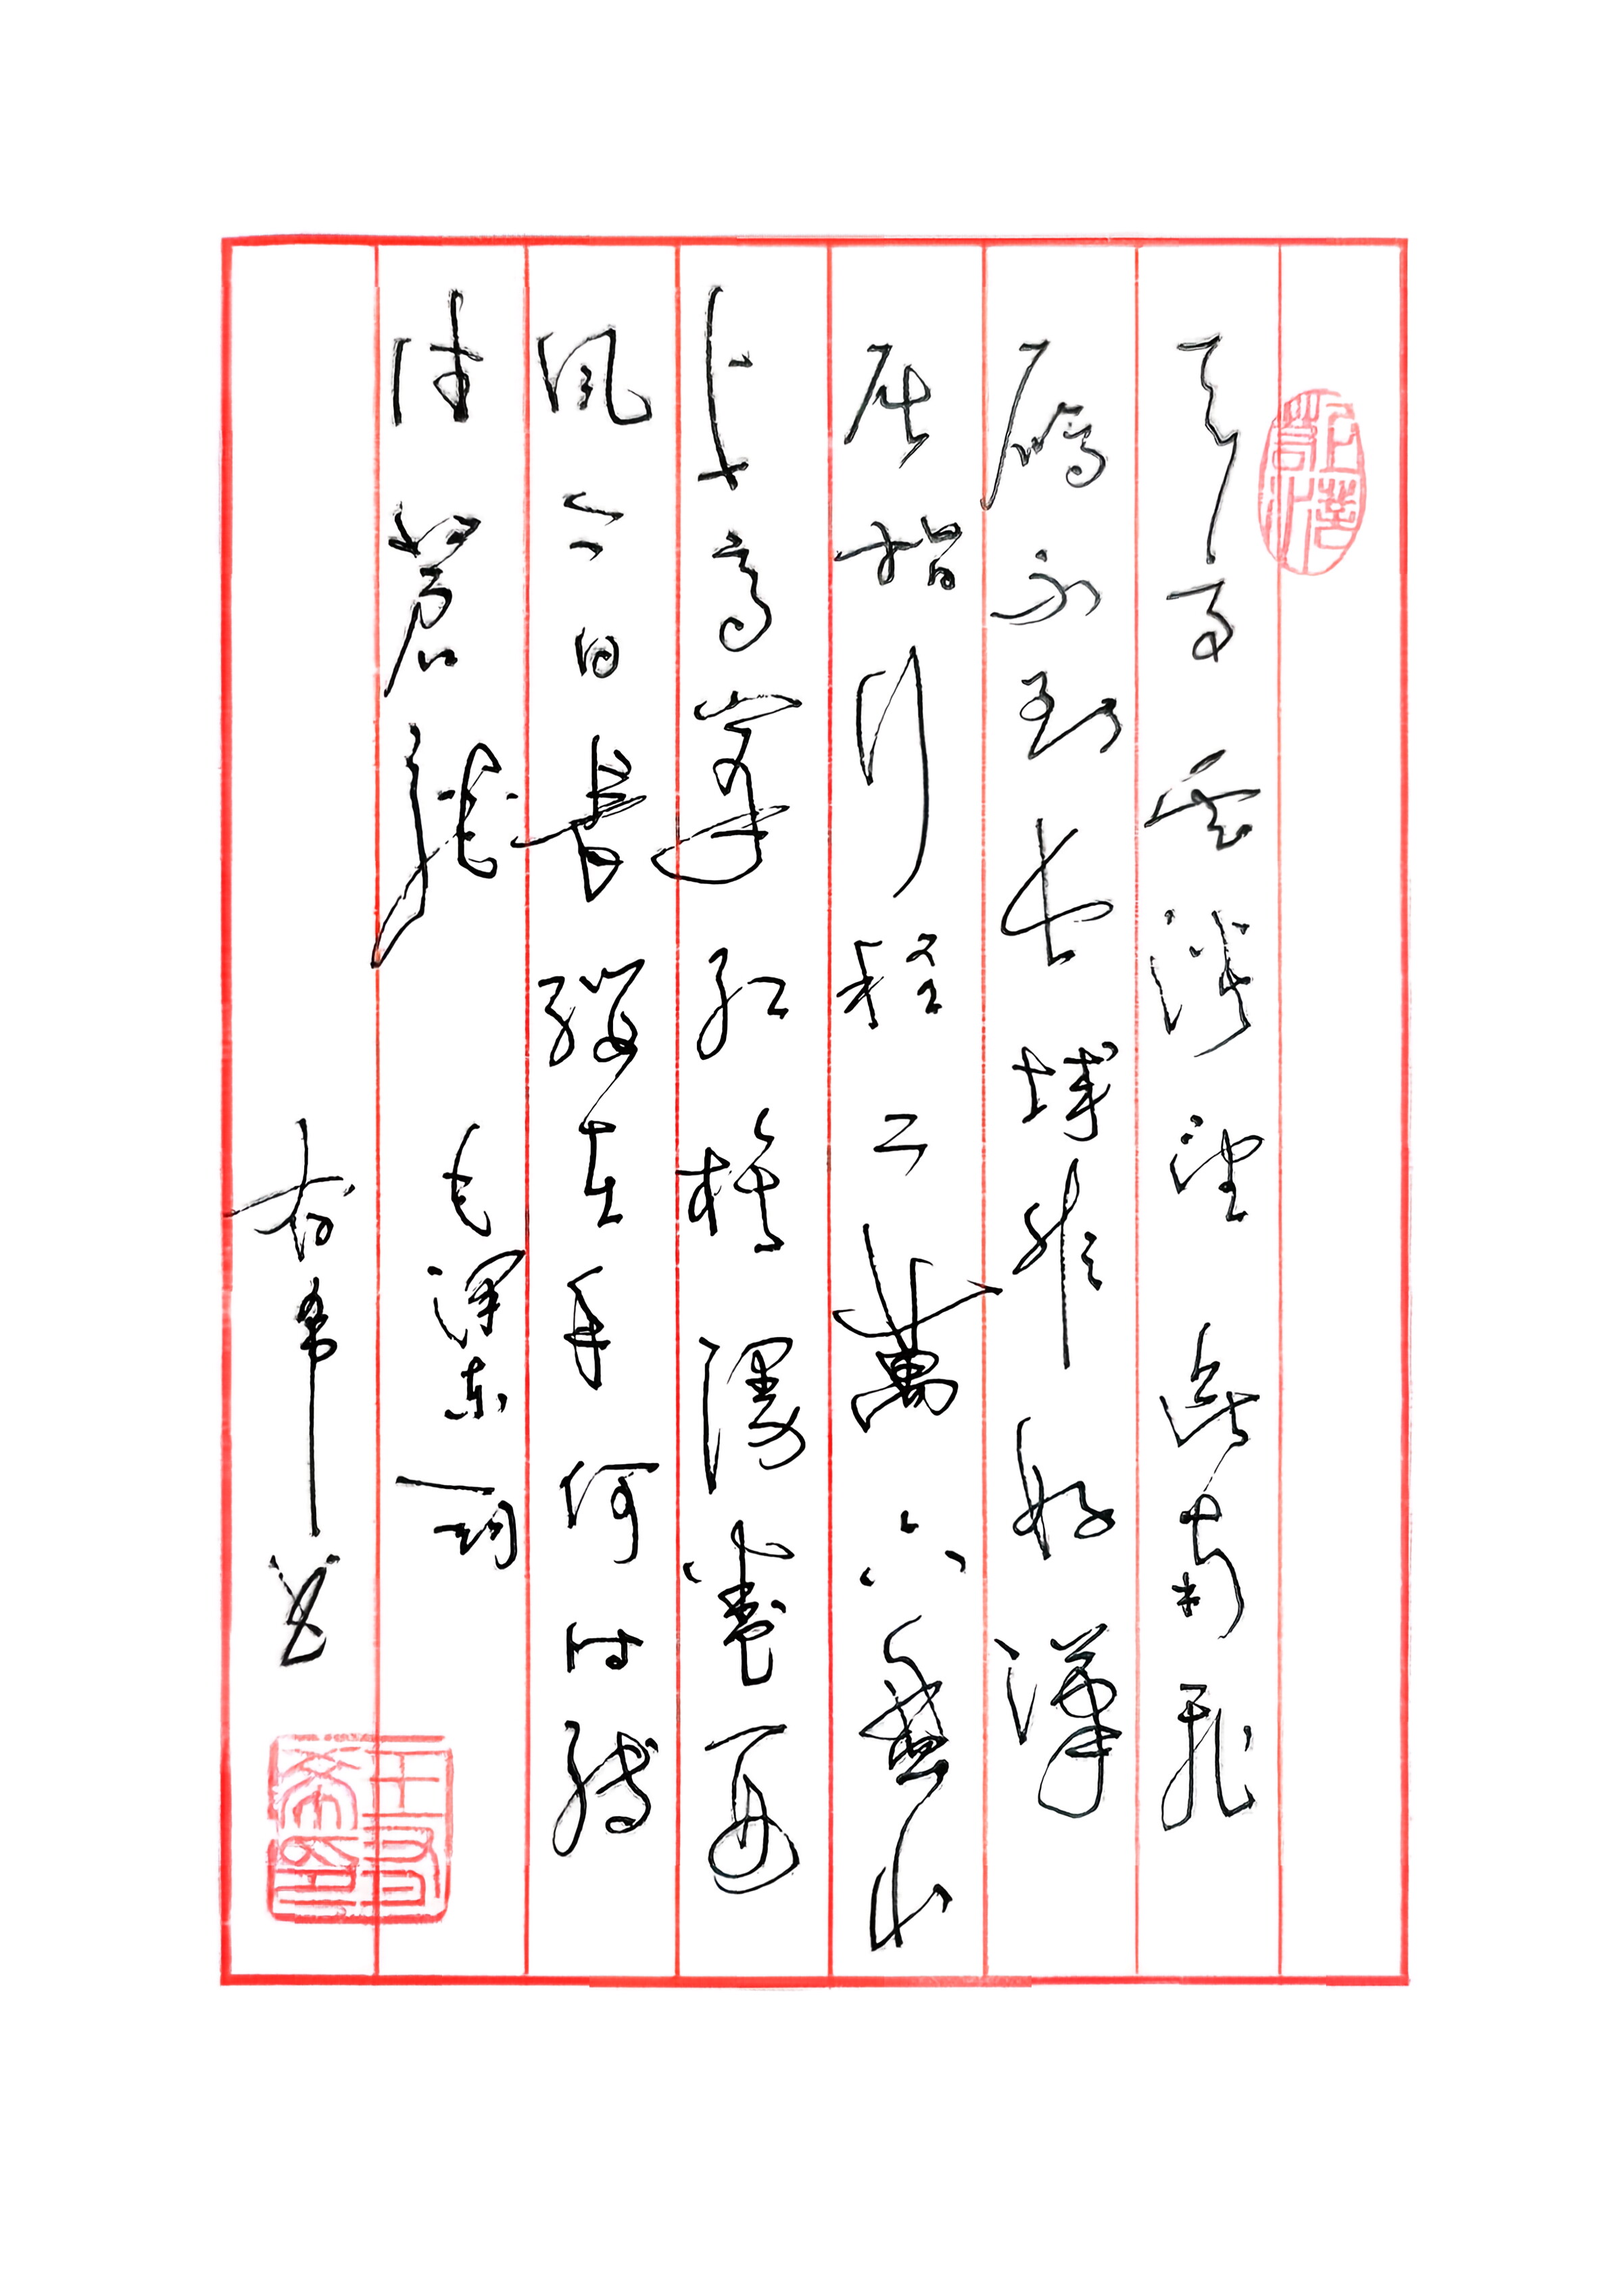 天高雲淡望斷南飛
雁不到長城非好漢
屈指行程二萬六盤山
上高峰紅旗漫卷西
風今日長纓在手何時縛
住蒼龍 毛澤東詞
友希書
王友希印